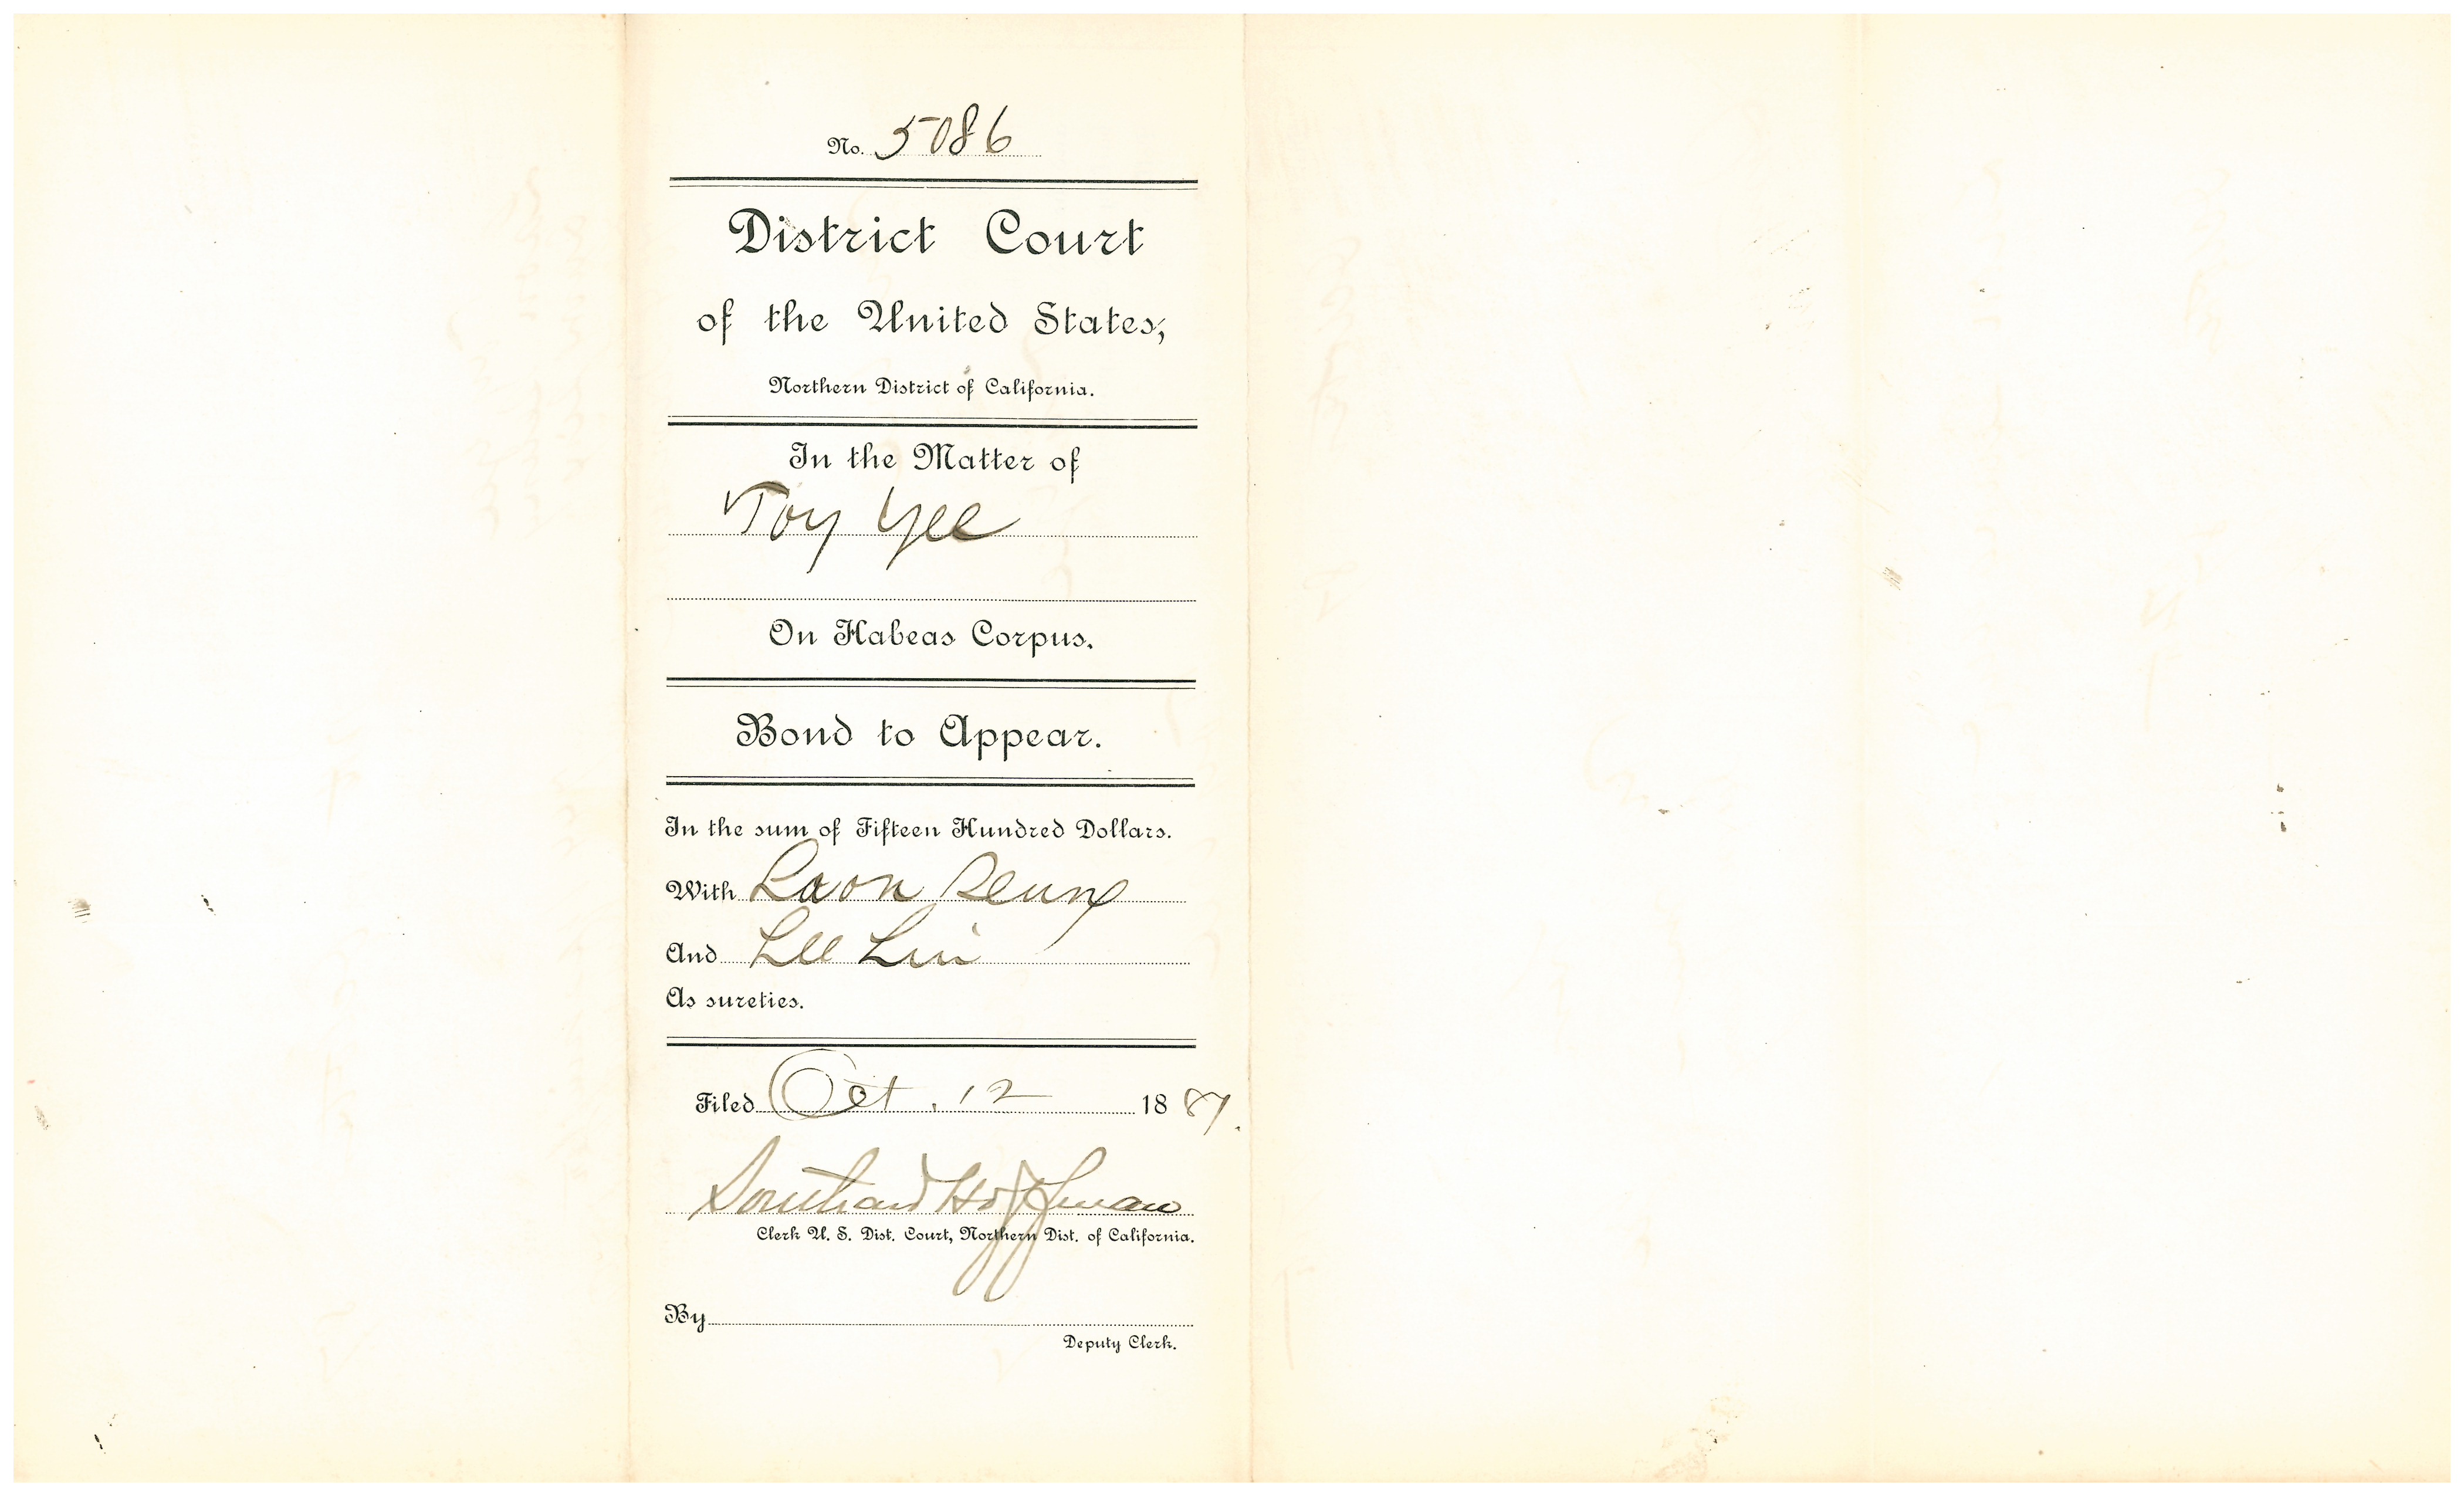 No. 5086
District Court
of the United States,
Northern District of California.
In the Matter of
Toy Yee
On Habeas Corpus.
Bond to Appear.
In the sum of Fifteen Hundred Dollars.
With Loon
And Lee
As sureties.
Filed Oct. 12 1887.
Southard Hoffman
Clerk U. S. Dist. Court, Northern Dist. of California.
By
Deputy Clerk.